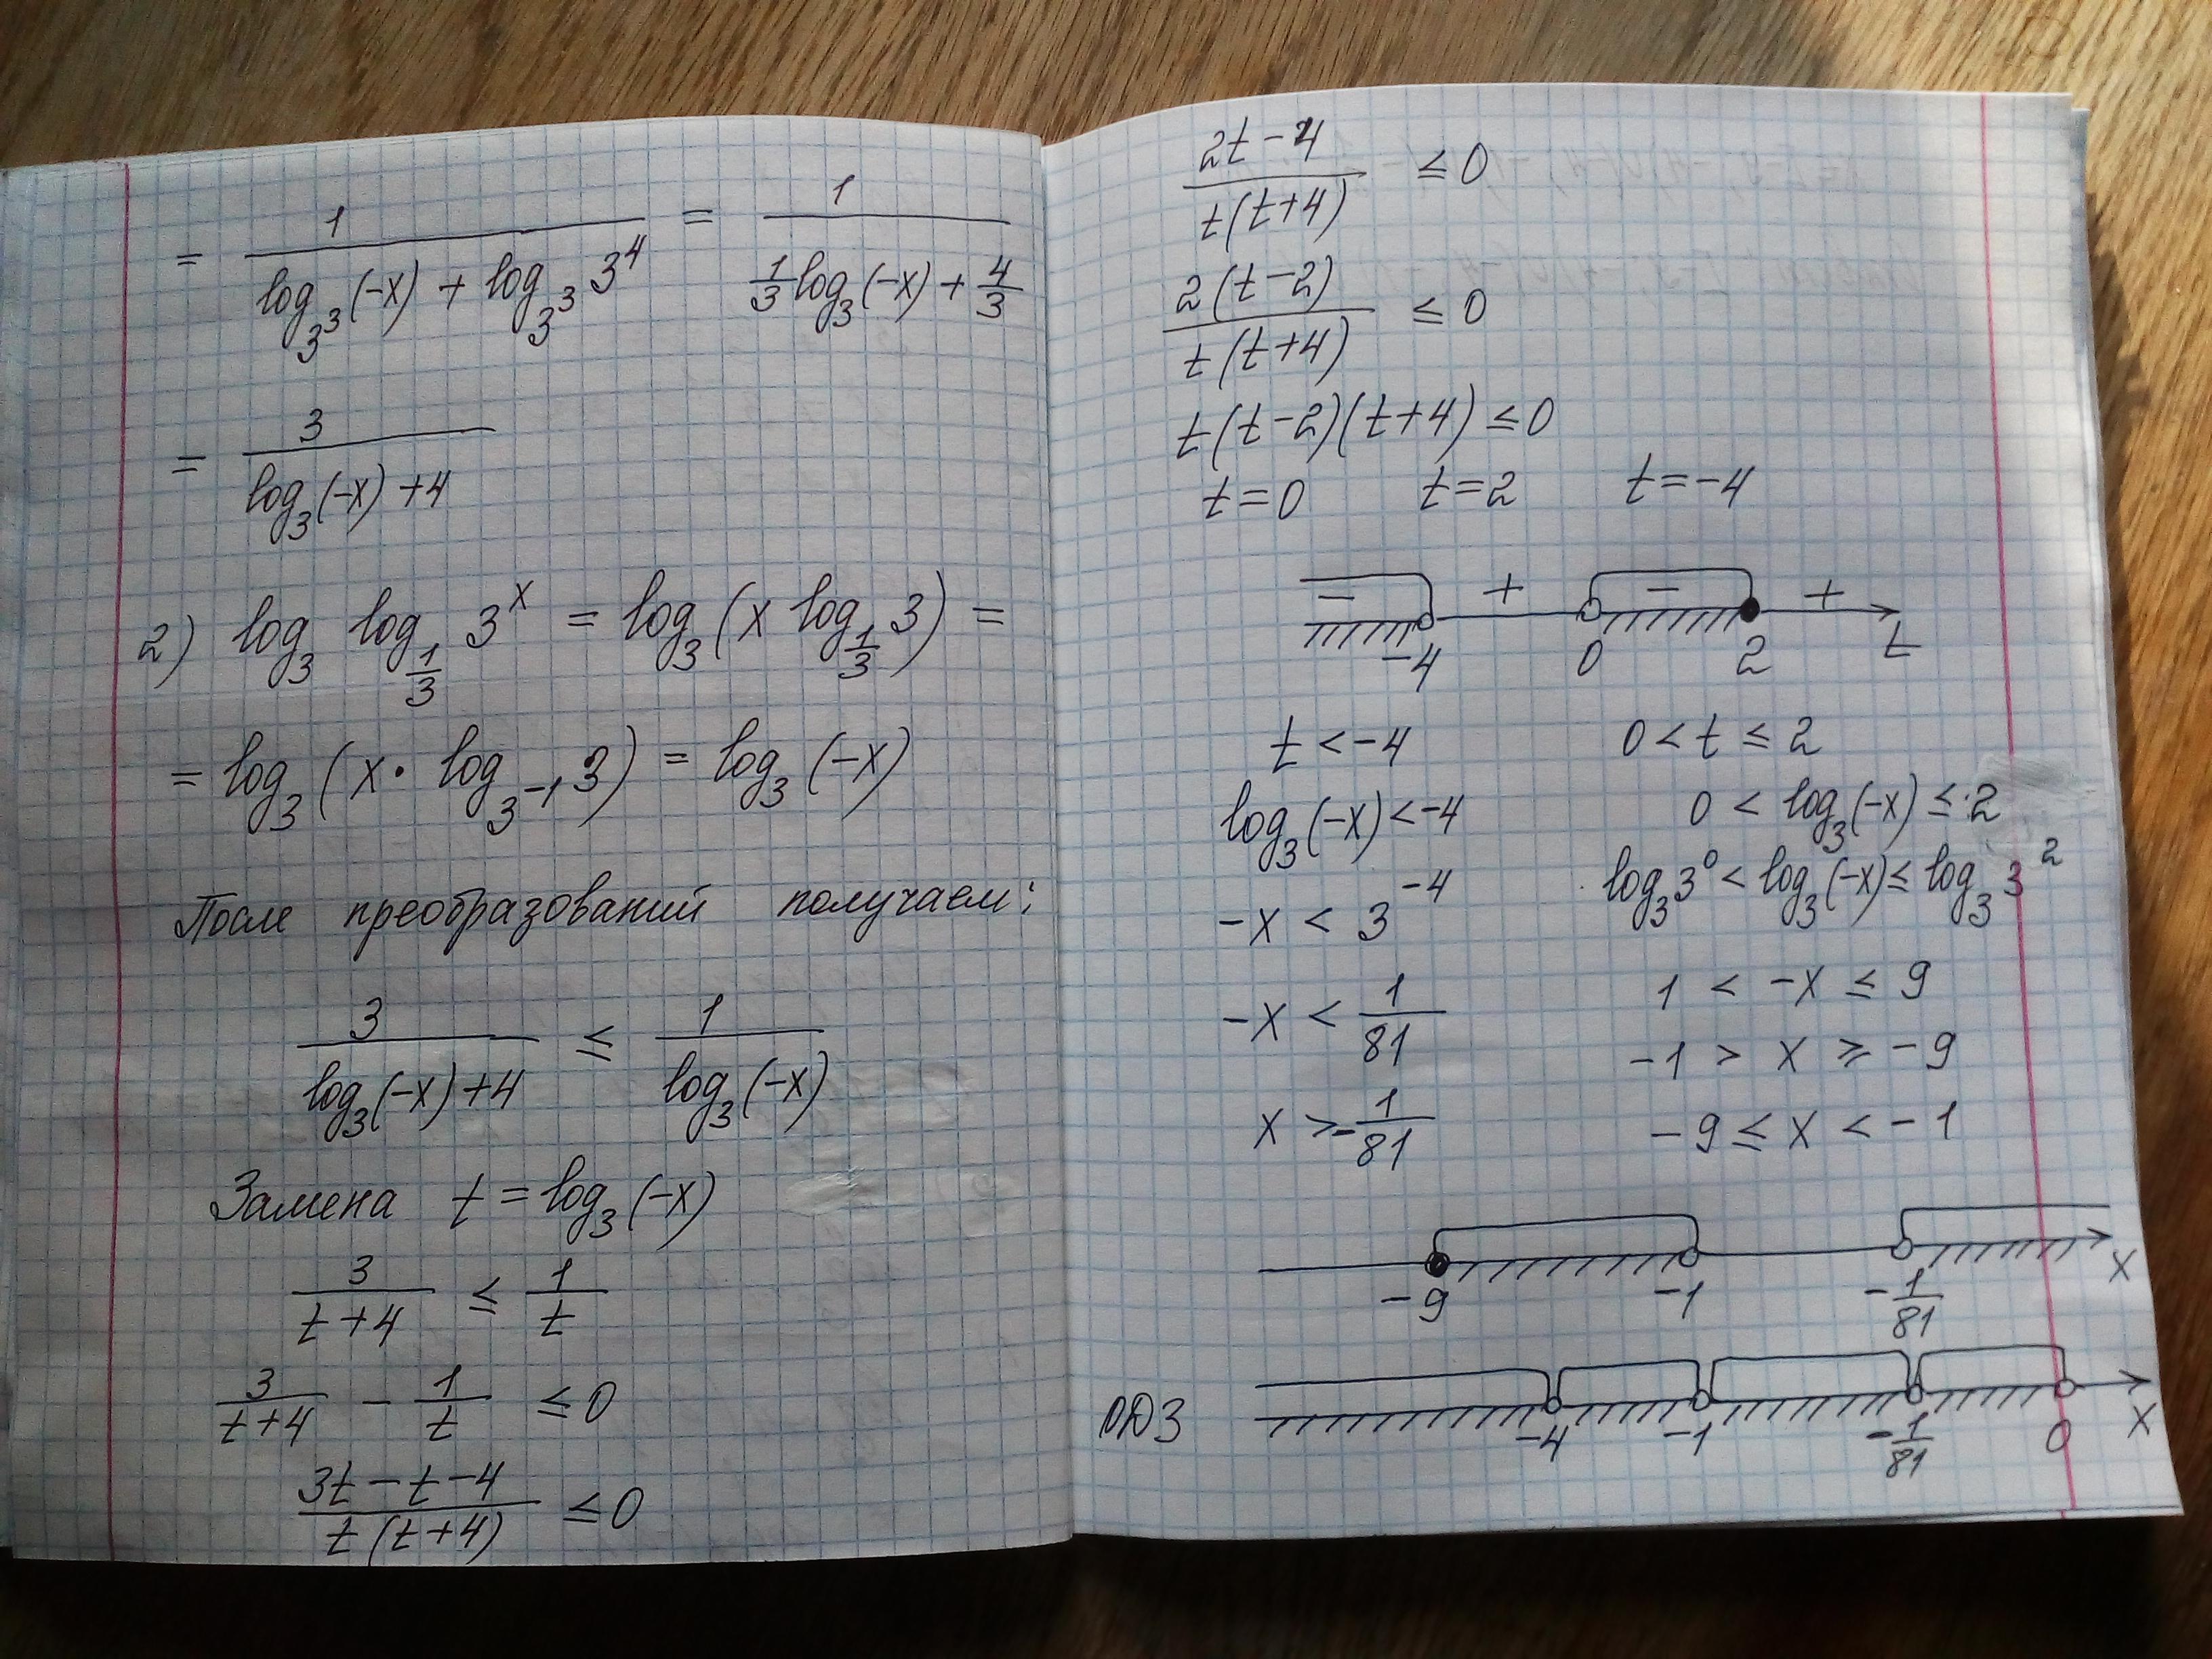 = 1/(log_{3^3}(-x) + log_{3^3} 3^4) = 1/(1/3 log_3(-x) + 4/3)
= 3/(log_3(-x) + 4)
2) log_3 log_{1/3} 3^x = log_3 (x log_{1/3} 3) =
= log_3 (x · log_{3^{-1}} 3) = log_3 (-x)
После преобразований получаем:
3/(log_3(-x) + 4) ≤ 1/(log_3(-x))
Замена t = log_3 (-x)
3/(t+4) ≤ 1/t
3/(t+4) - 1/t ≤ 0
(3t - t - 4)/(t(t+4)) ≤ 0
(2t - 4)/(t(t+4)) ≤ 0
2(t-2)/(t(t+4)) ≤ 0
t(t-2)(t+4) ≤ 0
t=0 t=2 t=-4
- + - +
-4 0 2 t
t < -4 0 < t ≤ 2
log_3(-x) < -4 0 < log_3(-x) ≤ 2
-x < 3^{-4} log_3 3^0 < log_3(-x) ≤ log_3 3^2
-x < 1/81 1 < -x ≤ 9
x > -1/81 -1 > x ≥ -9
-9 ≤ x < -1
-9 -1 -1/81 x
ОДЗ -4 -1 -1/81 0 x